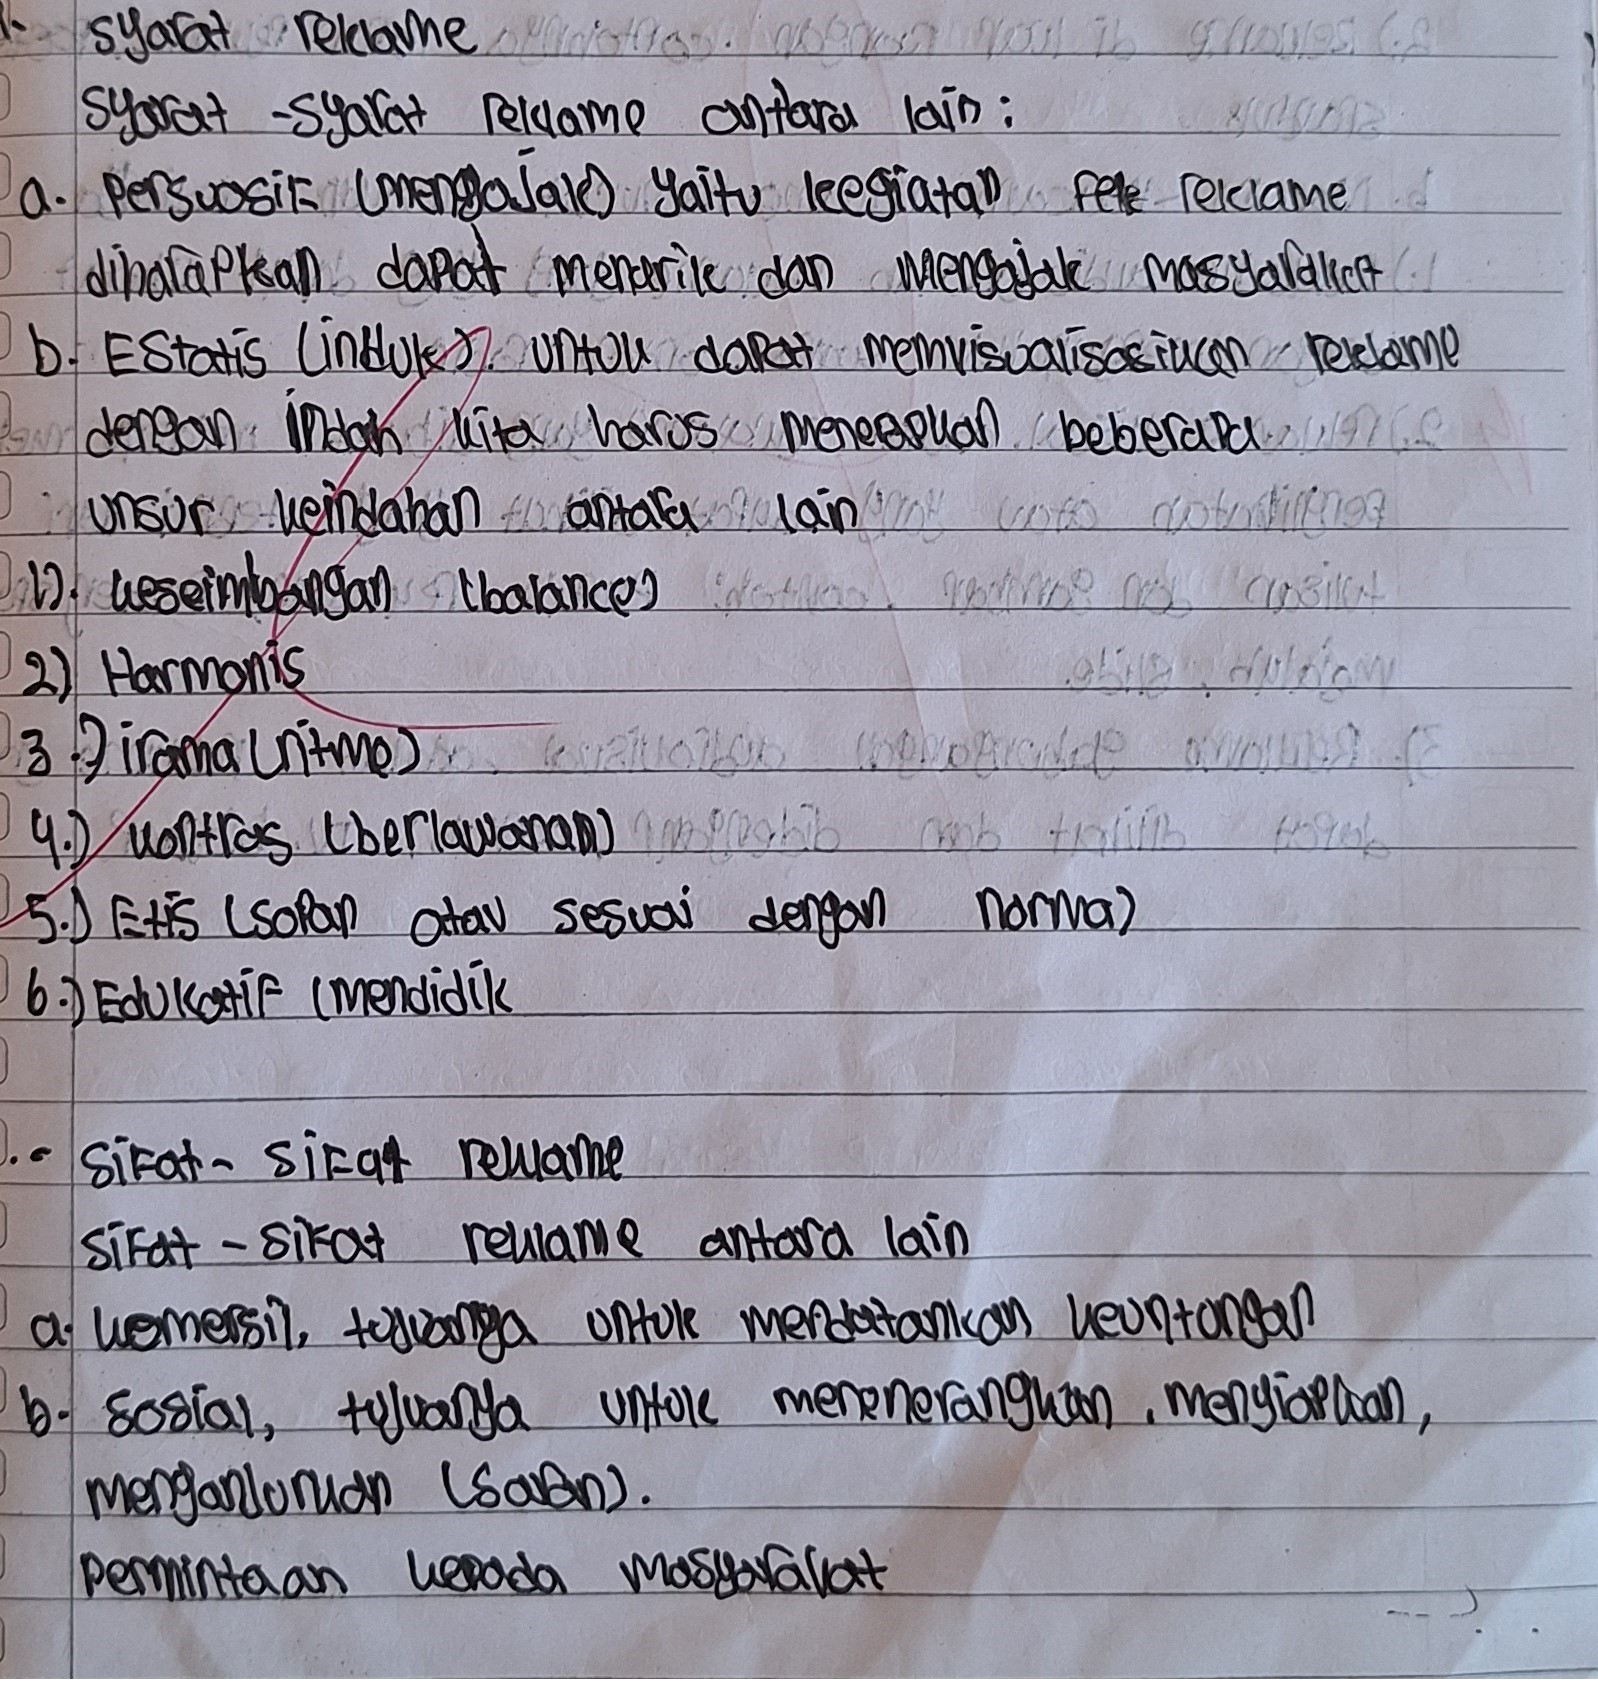 syarat reklame
syarat - syarat reklame antara lain :
a. Persuasif (mengajak) yaitu kegiatan reklame
diharapkan dapat menarik dan mengajak masyarakat
b. Estatis (induk). untuk dapat memvisualisasikan reklame
dengan indah kita harus menerapkan beberapa
unsur keindahan antara lain
1). keseimbangan (balance)
2) Harmonis
3.) irama (ritme)
4.) kontras (berlawanan)
5.) Etis (sopan atau sesuai dengan norma)
6.) Edukatif (mendidik
- sifat - sifat reklame
sifat - sifat reklame antara lain
a. komersil, tujuanya untuk mendatankan keuntongan
b. sosial, tujuanya untuk menenerangkan, menyiapkan,
menganjurkan (saran).
permintaan kepada masyarakat